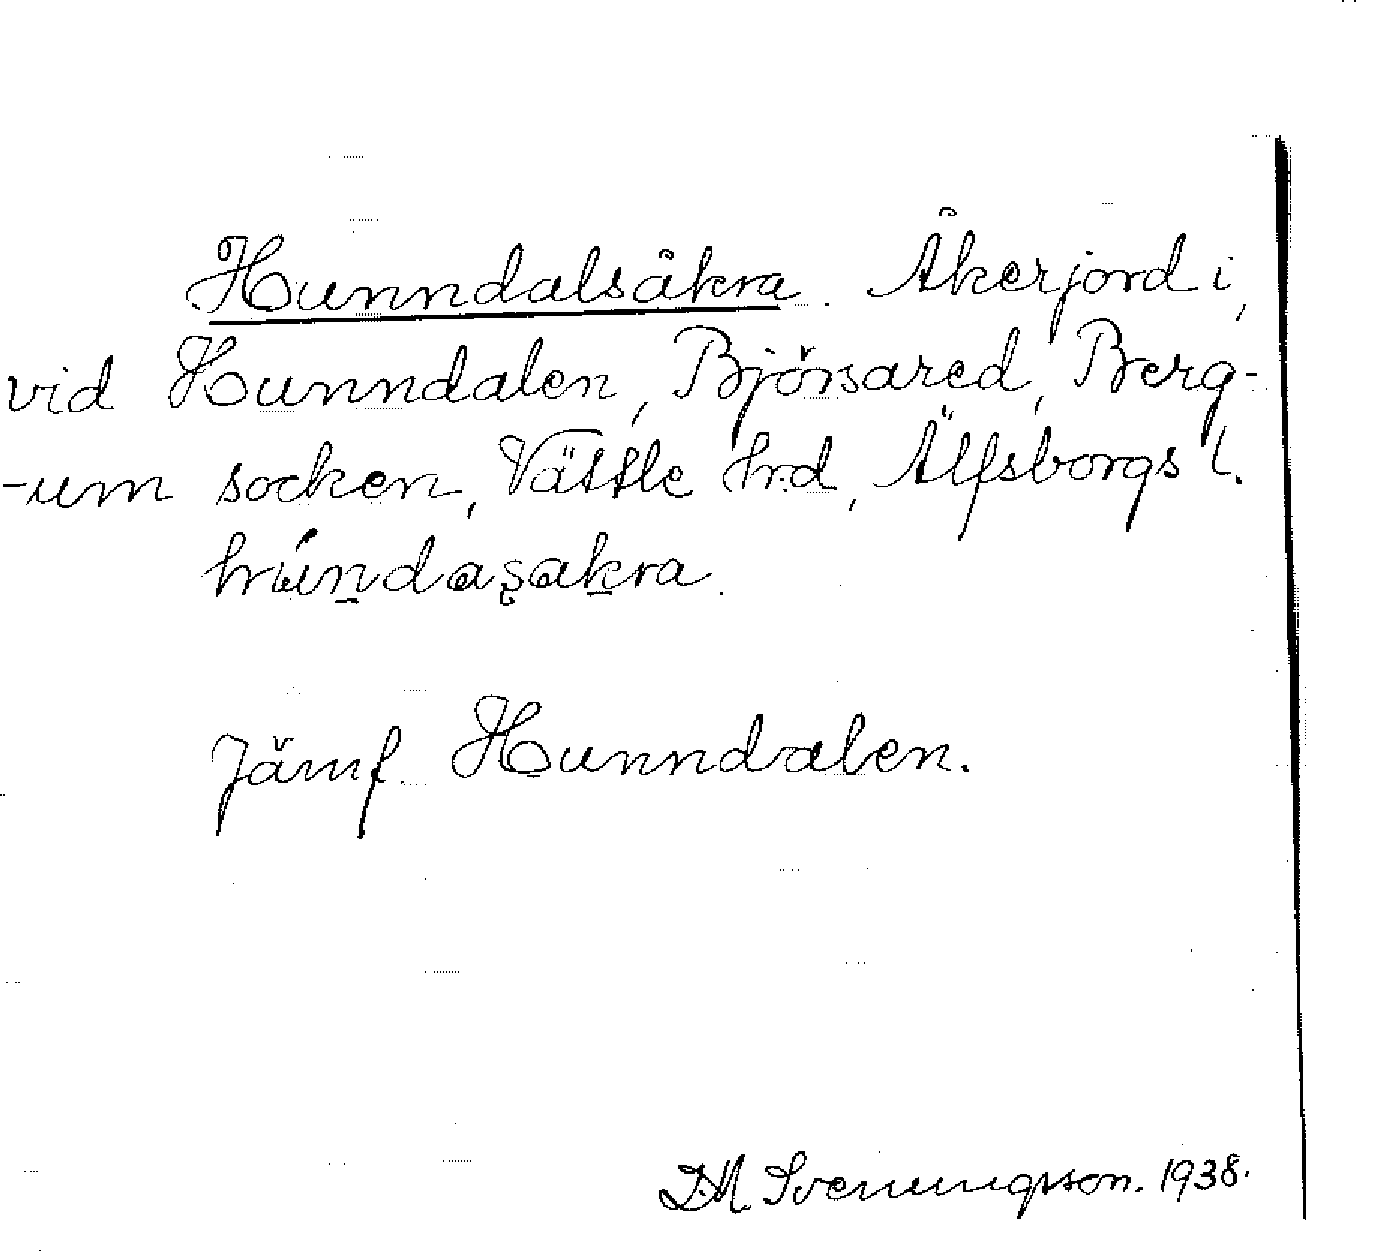 Hunndalsåkra. Åkerjord i,
vid Hunndalen, Björsared, Berg-
-um socken, Vättle hrd, Älfsborgs l.
Jämf. Hunndalen.
D.M. Svenningsson. 1938.